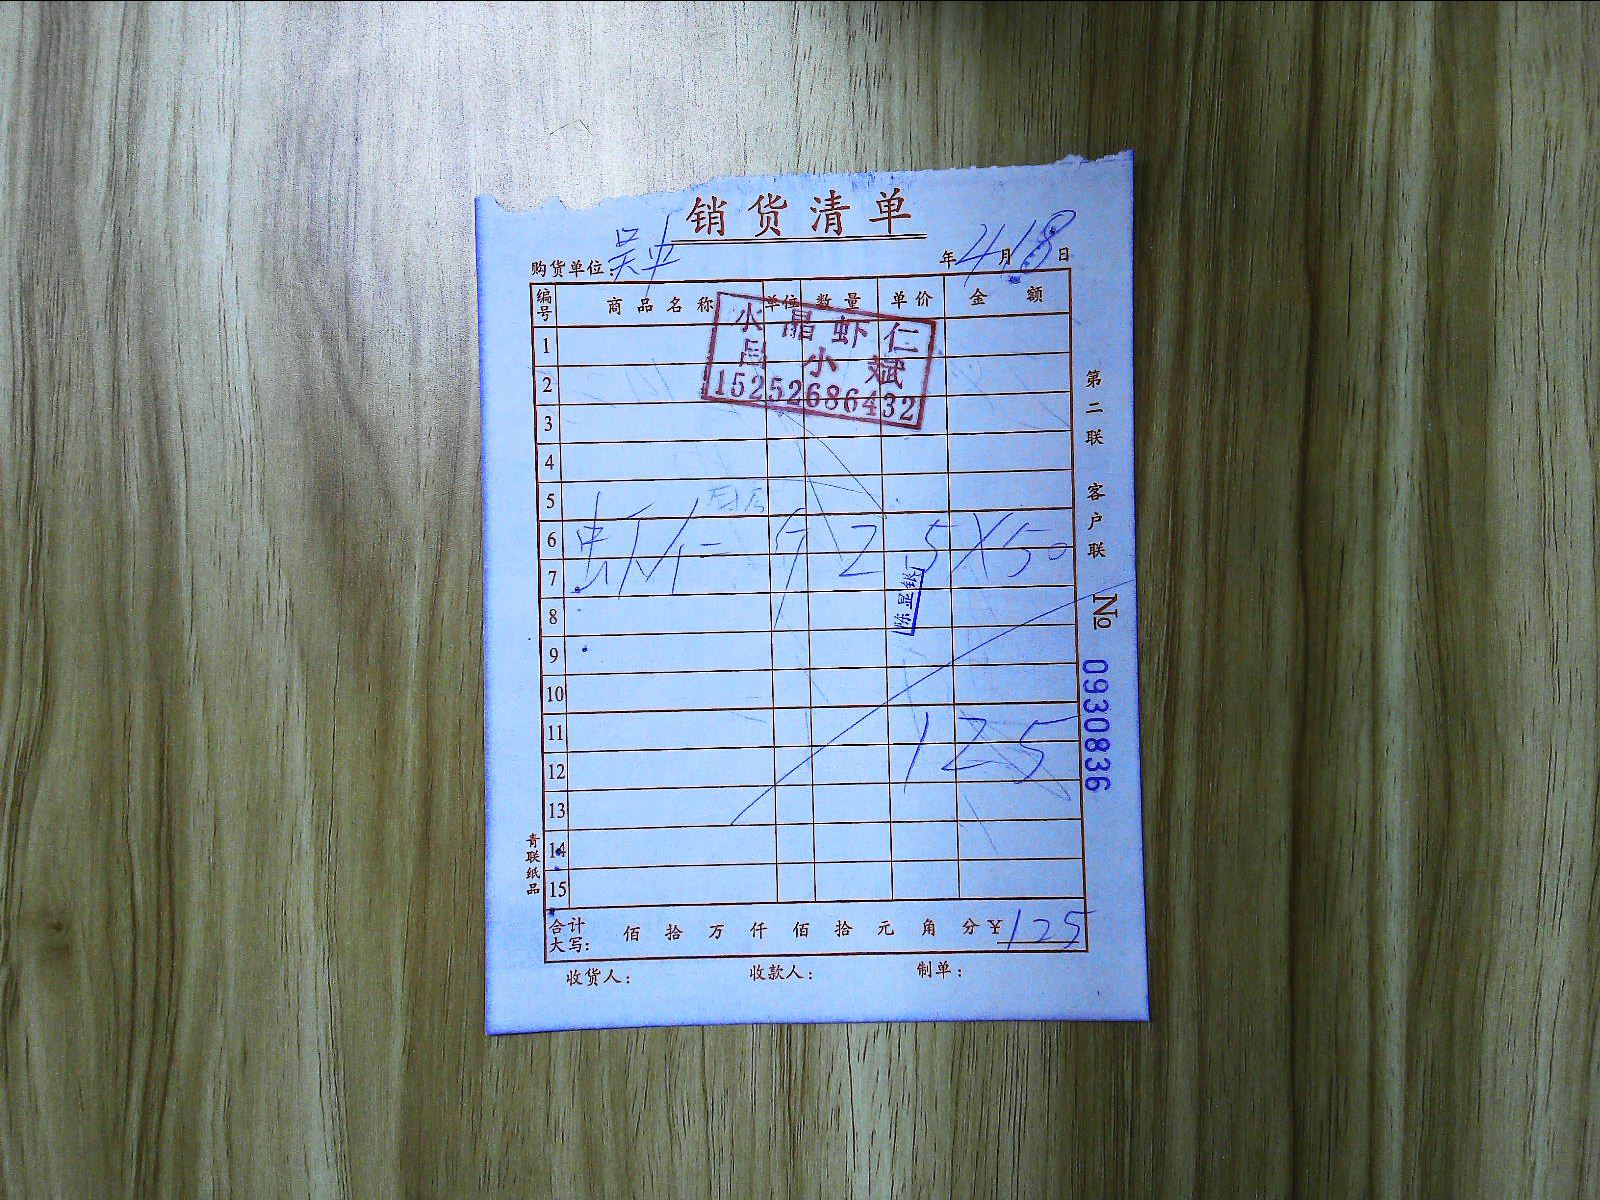 销货清单
购货单位: 吴中 年4月18日
编号 商品名称 单位 数量 单价 金额
小晶虾仁
吕小斌
15252686432
1
2
3
4
5
6
7
虾仁 斤 2.5×50
陈显银
8
9
10
11
125
12
13
14
15
合计大写: 佰 拾 万 仟 佰 拾 元 角 分 ¥125
收货人: 收款人: 制单:
第二联 客户联
№ 0930836
青联纸品